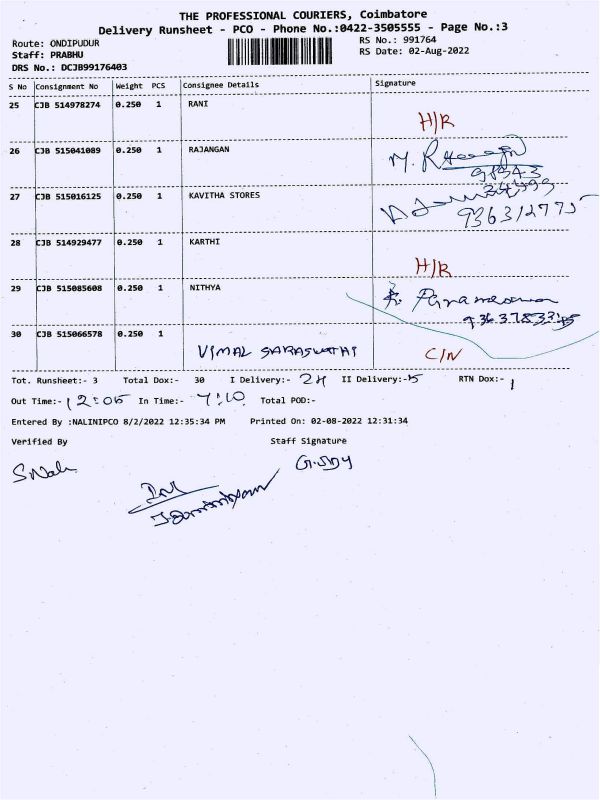 THE PROFESSIONAL COURIERS, Coimbatore
Delivery Runsheet - PCO - Phone No.:0422-3505555 - Page No.:3
Route: ONDIPUDUR RS No.: 991764
Staff: PRABHU RS Date: 02-Aug-2022
DRS No.: DCJB99176403
S No Consignment No Weight PCS Consignee Details Signature
25 CJB 514978274 0.250 1 RANI
H/R
26 CJB 515041089 0.250 1 RAJANGAN
27 CJB 515016125 0.250 1 KAVITHA STORES
9363127775
28 CJB 514929477 0.250 1 KARTHI
H/R
29 CJB 515085608 0.250 1 NITHYA
30 CJB 515066578 0.250 1
VIMAL SARASWATHI C/N
Tot. Runsheet:- 3 Total Dox:- 30 I Delivery:- 24 II Delivery:- RTN Dox:- 1
Out Time:- 12:05 In Time:- 7:10 Total POD:-
Entered By :NALINIPCO 8/2/2022 12:35:34 PM Printed On: 02-08-2022 12:31:34
Verified By Staff Signature